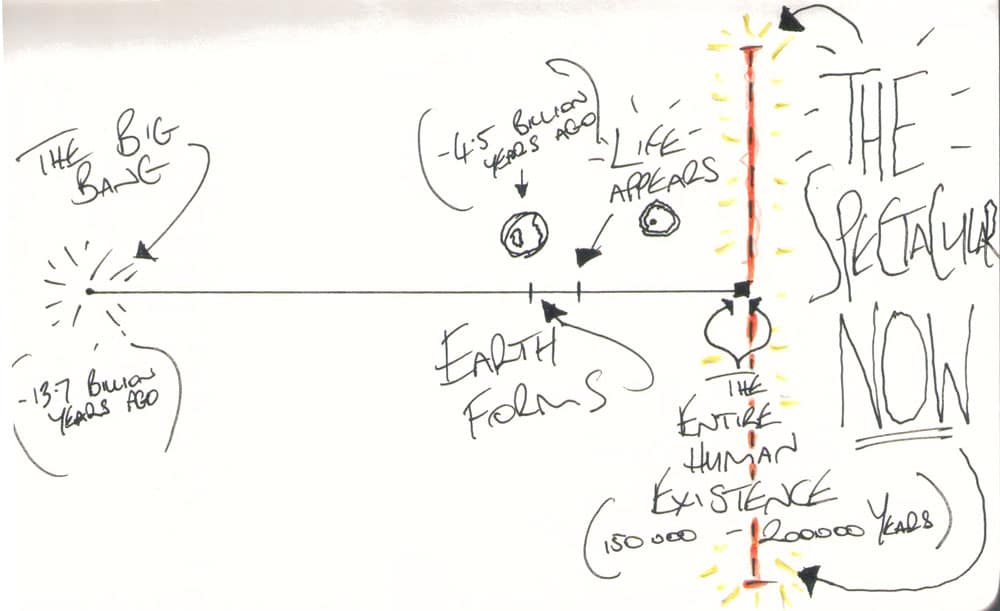 THE BIG
BANG
(~13.7 BILLION
YEARS AGO)
(~4.5 BILLION
YEARS AGO)
EARTH
FORMS
LIFE
APPEARS
THE
ENTIRE
HUMAN
EXISTENCE
(150000 - 200000 YEARS)
THE
SPECTACULAR
NOW